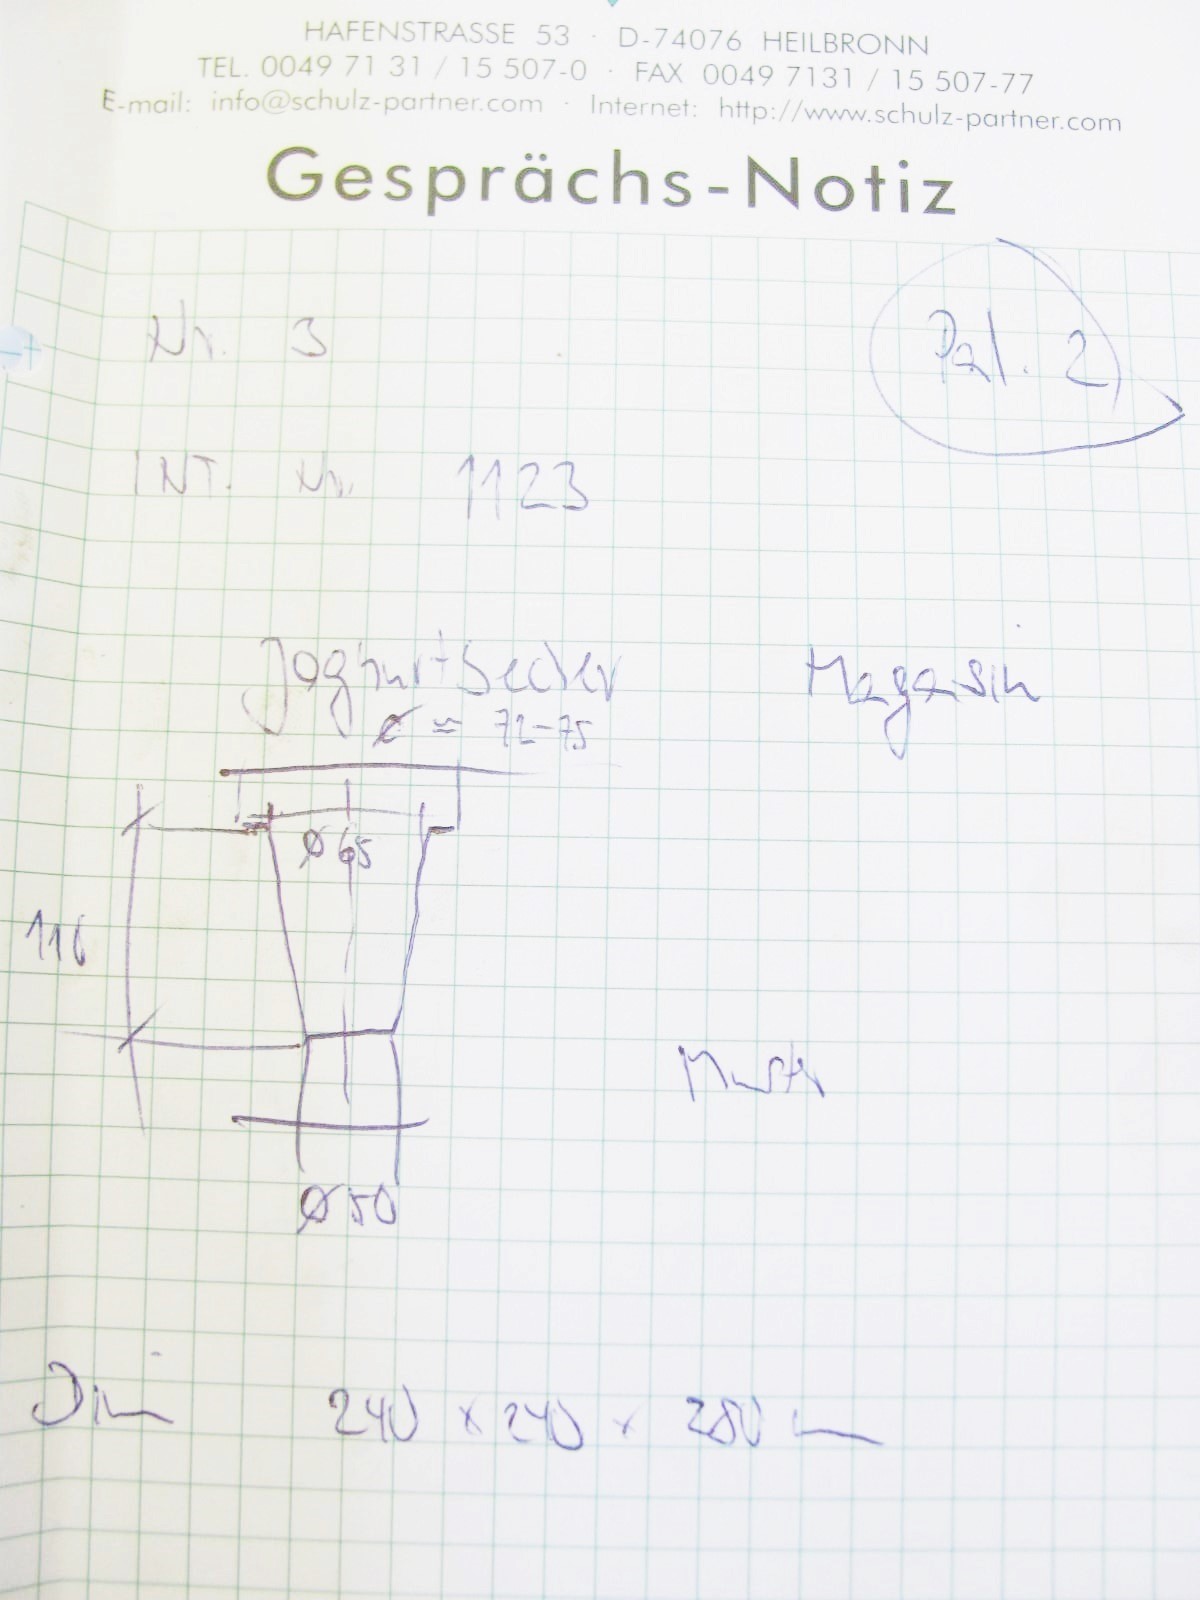 HAFENSTRASSE 53 · D-74076 HEILBRONN
TEL. 0049 71 31 / 15 507-0 · FAX 0049 7131 / 15 507-77
E-mail: info@schulz-partner.com · Internet: http://www.schulz-partner.com
Gesprächs-Notiz
Nr. 3
Pal. 2
INT. Nr. 1123
Joghurtbecher
Magasin
Ø ≈ 72-75
Ø 65
110
Muster
Ø 50
Dim 240 x 240 x